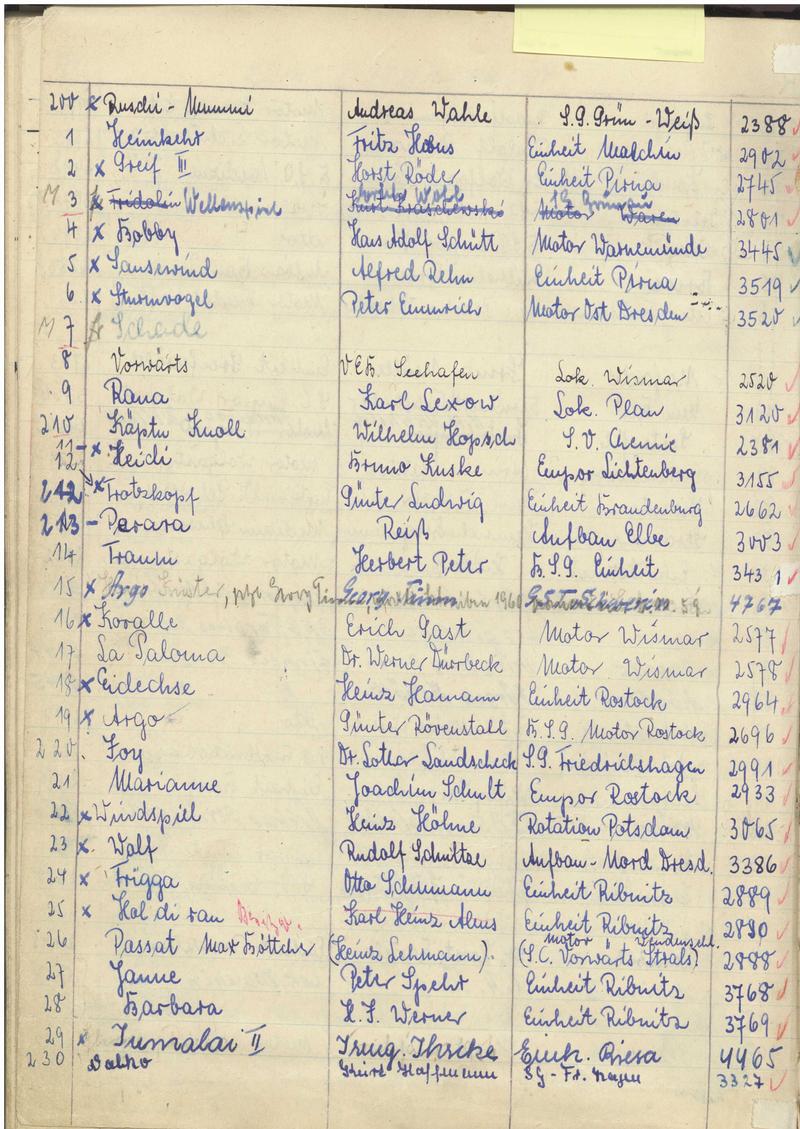 200 x Ruschi - Mummi Andreas Wahle S.G. Grün - Weiß 2388
1 Heimkehr Fritz Haus Einheit Malchin 2902
2 x Greif III Horst Röder Einheit Pirna 2745
M 3 x Fridolin Wellenspiel Karl Kraschewski Motor Waren 2801
4 x Bobby Hans Adolf Schütt Motor Warnemünde 3445
5 x Sausewind Alfred Rehn Einheit Pirna 3519
6 x Sturmvogel Peter Emmrich Motor Ost Dresden 3520
M 7 Schade
8 Vorwärts VEB. Seehafen Lok. Wismar 2520
9 Rana Karl Lexow Lok. Plau 3120
210 Käptn Knoll Wilhelm Hopsch S.V. Chemie 2381
11 - x Heidi Bruno Kuske Empor Lichtenberg 3155
12
212 x Trotzkopf Günter Ludwig Einheit Brandenburg 2662
213 - Perara Reiß Aufbau Elbe 3003
14 Traum Herbert Peter B.S.G. Einheit 3431
15 x Argo Georg Timm 4767
16 x Koralle Erich Gast Motor Wismar 2577
17 La Paloma Dr. Werner Dürrbeck Motor Wismar 2578
18 x Eidechse Heinz Hamann Einheit Rostock 2964
19 x Argo Günter Rövenstall B.S.G. Motor Rostock 2696
220. Joy Dr. Lothar Landscheck S.G. Friedrichshagen 2991
21 Marianne Joachim Schult Empor Rostock 2933
22 x Windspiel Heinz Höhne Rotation Potsdam 3065
23 x. Wolf Rudolf Schultze Aufbau - Nord Dresd. 3386
24 x Frigga Otto Schumann Einheit Ribnitz 2889
25 x Hol di ran Karl Heinz Alms Einheit Ribnitz 2890
26 Passat Max Böttcher (Heinz Lehmann). Motor (S.C. Vorwärts Strals.) 2888
27 Janne Peter Spehr Einheit Ribnitz 3768
28 Barbara H. J. Werner Einheit Ribnitz 3769
29 x Jumalai II Einh. Riesa 4465
230 3327